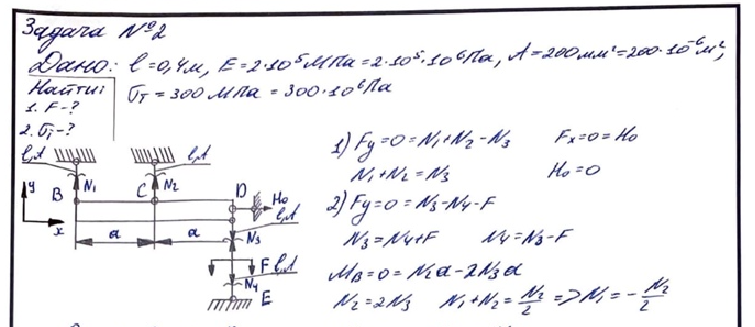 Задача №2
Дано: l=0,4м, E=2·10⁵МПа=2·10⁵·10⁶Па, A=200мм²=200·10⁻⁶м²,
Найти: σт=300 МПа=300·10⁶Па
1. F-?
2. σi-?
l,A l,A
y B N1 C N2 D H0
l,A
x a a N3
F l,A
N4
E
1) Fy=0=N1+N2-N3 Fx=0=H0
N1+N2=N3 H0=0
2) Fy=0=N3-N4-F
N3=N4+F N4=N3-F
MB=0=N2a-2N3a
N2=2N3 N1+N2=N2/2 => N1=-N2/2